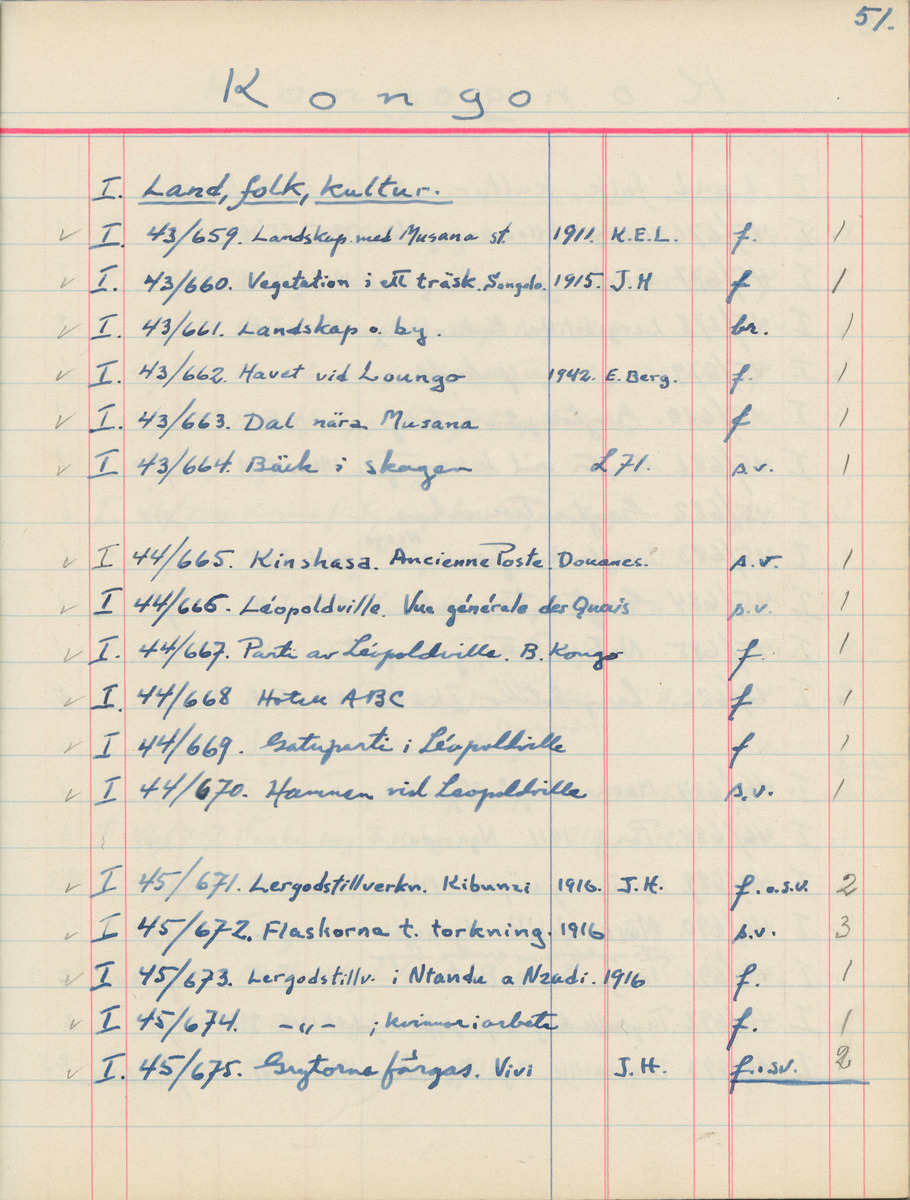 51.
Kongo
I. Land, folk, kultur.
✓ I. 43/659. Landskap med Musana st. 1911. K.E.L. f. 1
✓ I. 43/660. Vegetation i ett träsk. Songolo. 1915. J.H f 1
✓ I. 43/661. Landskap o. by. br. 1
✓ I. 43/662. Havet vid Loungo 1942. E. Berg. f. 1
✓ I. 43/663. Dal nära Musana f 1
✓ I 43/664. Bäck i skogen L 71. s.v. 1
✓ I 44/665. Kinshasa. Ancienne Poste Douanes. s.v. 1
✓ I 44/666. Léopoldville. Vue générale des Quais s.v. 1
✓ I. 44/667. Parti av Léopoldville. B. Kongo f. 1
✓ I. 44/668 Hotell ABC f 1
✓ I 44/669. Gatuparti i Léopoldville f 1
✓ I 44/670. Hamnen vid Leopoldville s.v. 1
✓ I 45/671. Lergodstillverkn. Kibunzi 1916. J.H. f. o. s.v. 2
✓ I 45/672. Flaskorna t. torkning. 1916 s.v. 3
✓ I 45/673. Lergodstillv. i Ntandu a Nzadi. 1916 f. 1
✓ I 45/674. -"- ; kvinnor i arbete f. 1
✓ I. 45/675. Grytorna färgas. Vivi J.H. f. o. sv. 2